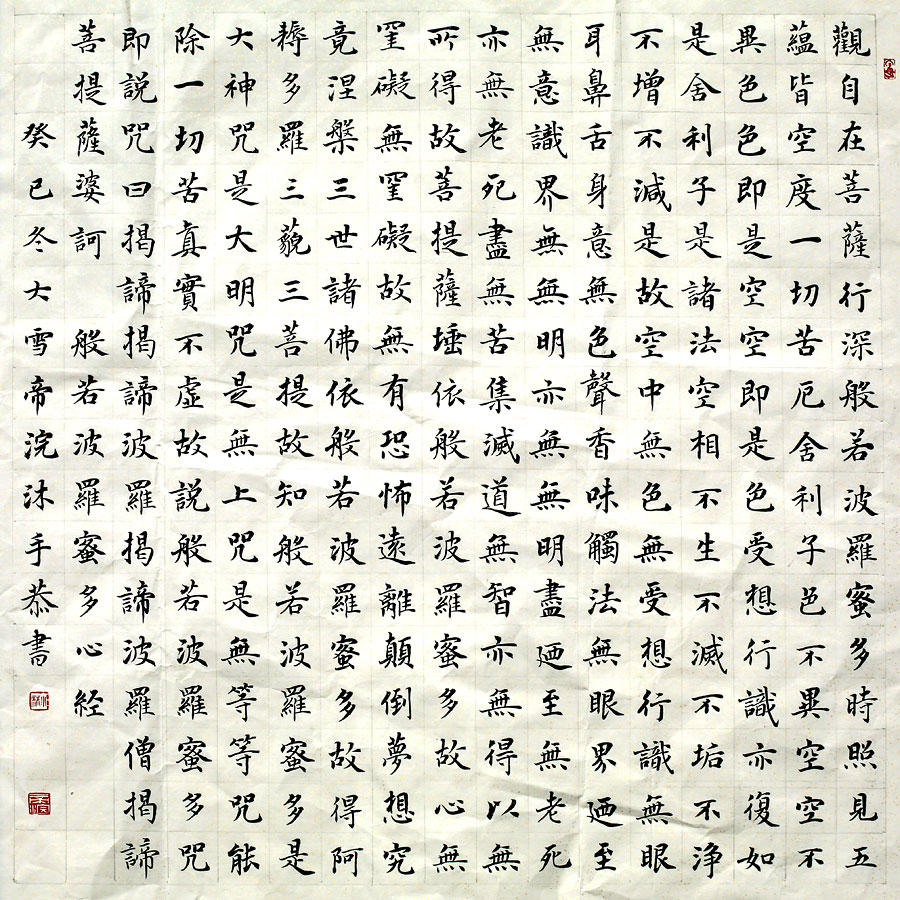 觀自在菩薩行深般若波羅蜜多時照見五
蘊皆空度一切苦厄舍利子色不異空空不
異色色即是空空即是色受想行識亦復如
是舍利子是諸法空相不生不滅不垢不净
不增不減是故空中無色無受想行識無眼
耳鼻舌身意無色聲香味觸法無眼界廼至
無意識界無無明亦無無明盡廼至無老死
亦無老死盡無苦集滅道無智亦無得以無
所得故菩提薩埵依般若波羅蜜多故心無
罣礙無罣礙故無有恐怖遠離顛倒夢想究
竟涅槃三世諸佛依般若波羅蜜多故得阿
耨多羅三藐三菩提故知般若波羅蜜多是
大神咒是大明咒是無上咒是無等等咒能
除一切苦真實不虛故說般若波羅蜜多咒
即說咒曰揭諦揭諦波羅揭諦波羅僧揭諦
菩提薩婆訶 般若波羅蜜多心経
癸巳冬大雪帝浣沐手恭書